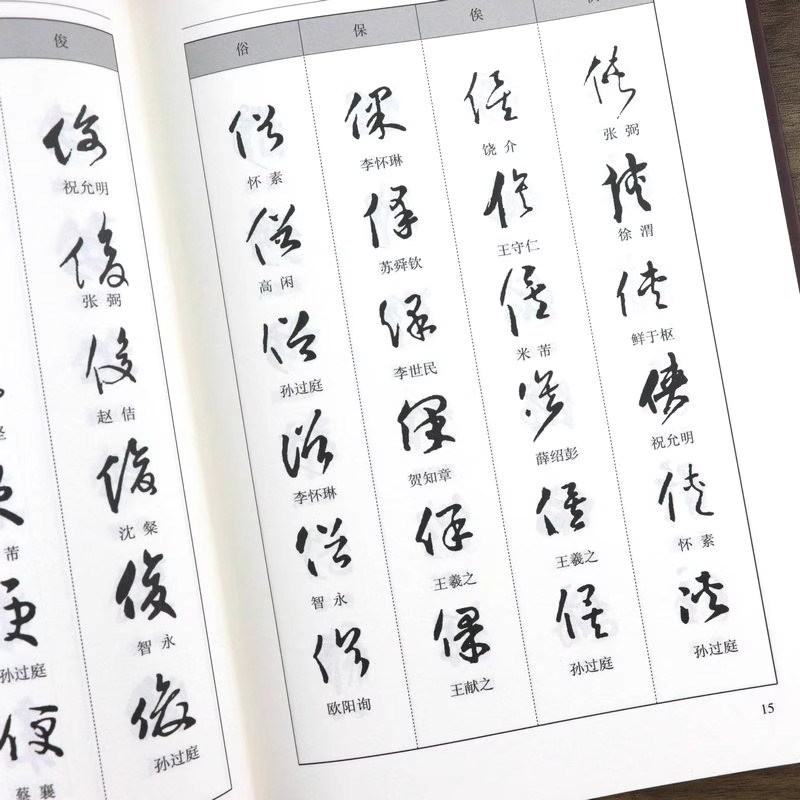 芾
便
孙过庭
便
蔡襄
俊
俊
祝允明
俊
张弼
俊
赵佶
俊
沈粲
俊
智永
俊
孙过庭
俗
俗
怀素
俗
高闲
俗
孙过庭
俗
李怀琳
俗
智永
俗
欧阳询
保
保
李怀琳
保
苏舜钦
保
李世民
保
贺知章
保
王羲之
保
王献之
俟
俟
饶介
俟
王守仁
俟
米芾
俟
薛绍彭
俟
王羲之
俟
孙过庭
侠
张弼
侠
徐渭
侠
鲜于枢
侠
祝允明
侠
怀素
侠
孙过庭
15